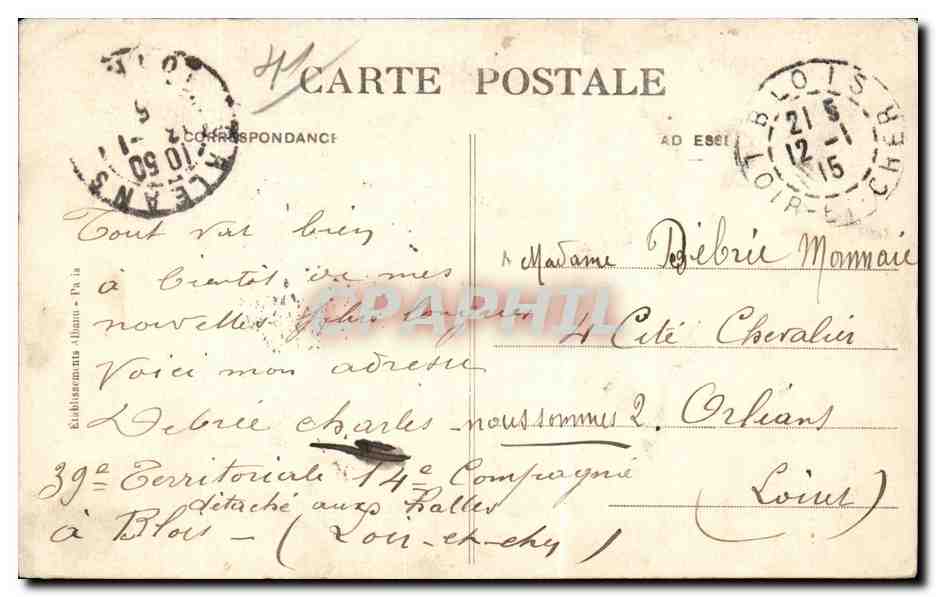 41
CARTE POSTALE
CORRESPONDANCE
AD ESSE
BLOIS
21 5
12 -1
15
LOIR-ET-CHER
10 50
12 -1
5
RLEANS
Tout vat bien
à bientôt de mes
nouvelles plus longues
Voici mon adresse
Debrée Charles nous sommes 2.
39e Territoriale 14e Compagnie
détaché aux halles
à Blois - (Loir-et-cher)
Madame Débrée Monnaie
4 Cité Chevalier
Orléans
(Loiret)
Etablissements Albaret - Paris
CPAPHIL